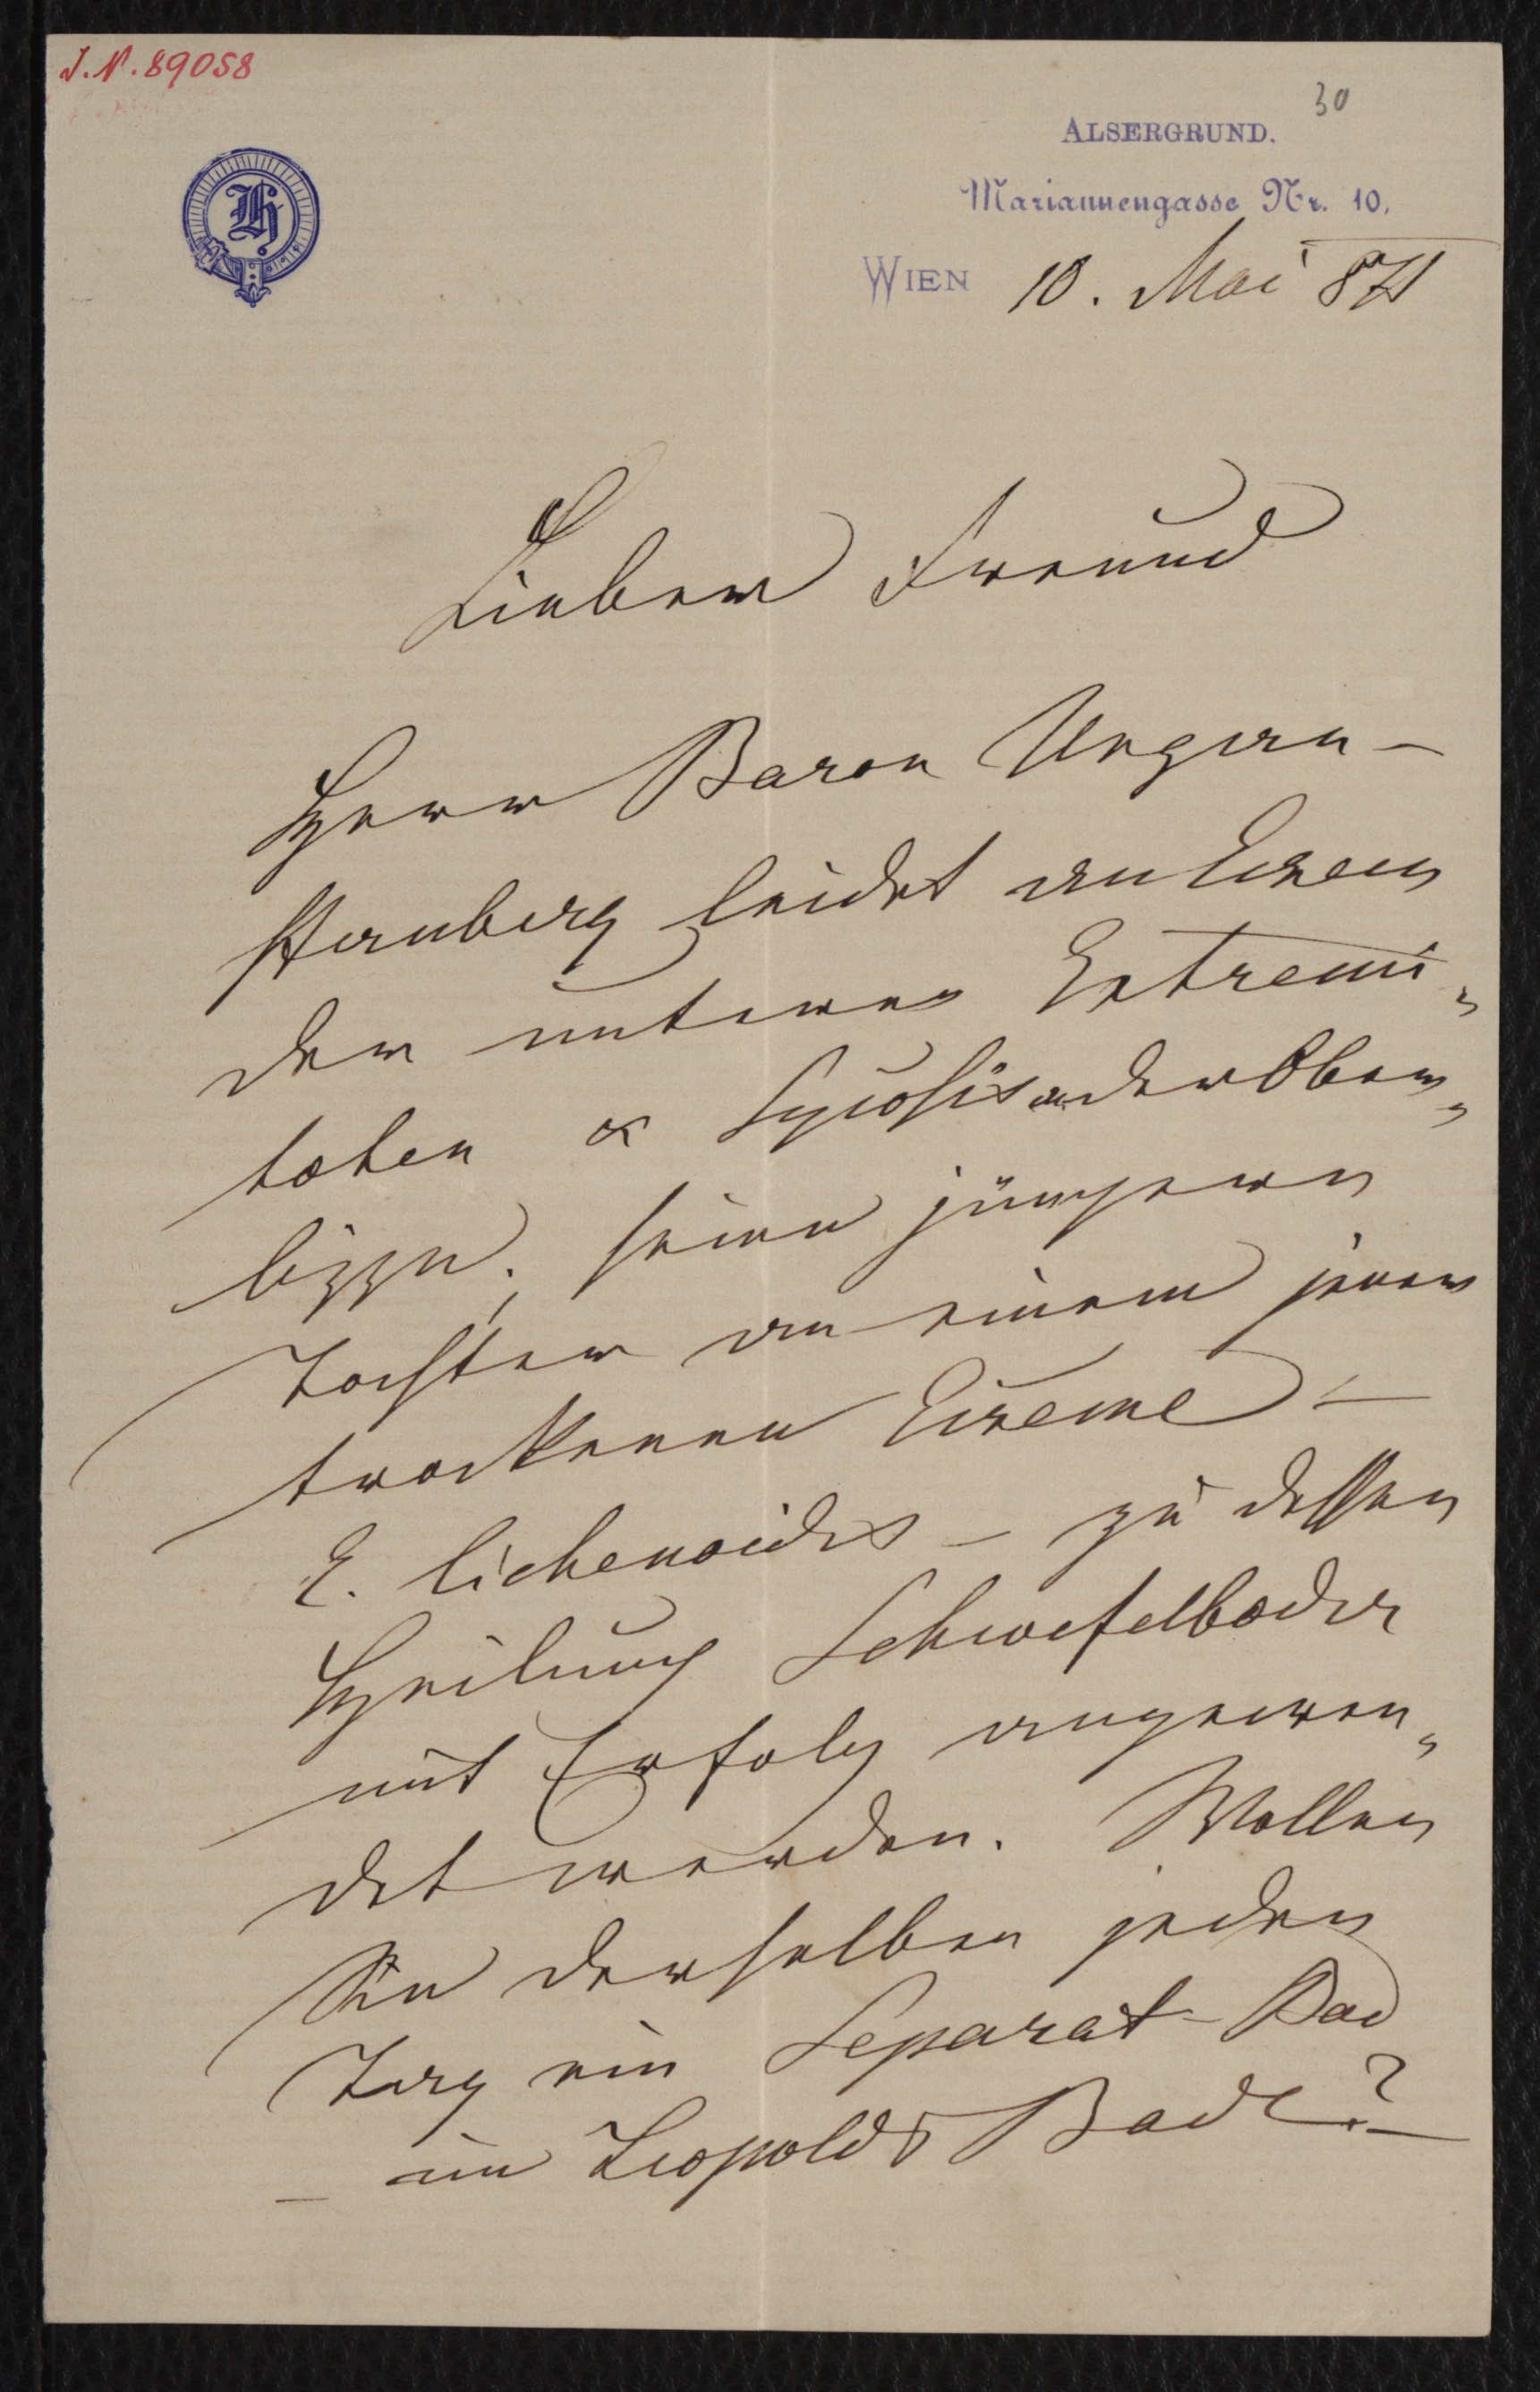 I.N. 89058
30
ALSERGRUND.
Mariannengasse Nr. 10.
H
WIEN 10. Mai 871
Lieber Freund
Herr Baron Ungern-
Sternberg leidet an Eczem
der unteren Extremi„
täten & der Ober„
seine jüngere
Tochter an einem
trockenen Eczeme –
E. lichenoides – zu dessen
Heilung Schwefelbäder
mit Erfolg angewen„
det werden. Wollen
Sie derselben jeden
Tag ein Separat-Bad
– im Leopolds Bade? –